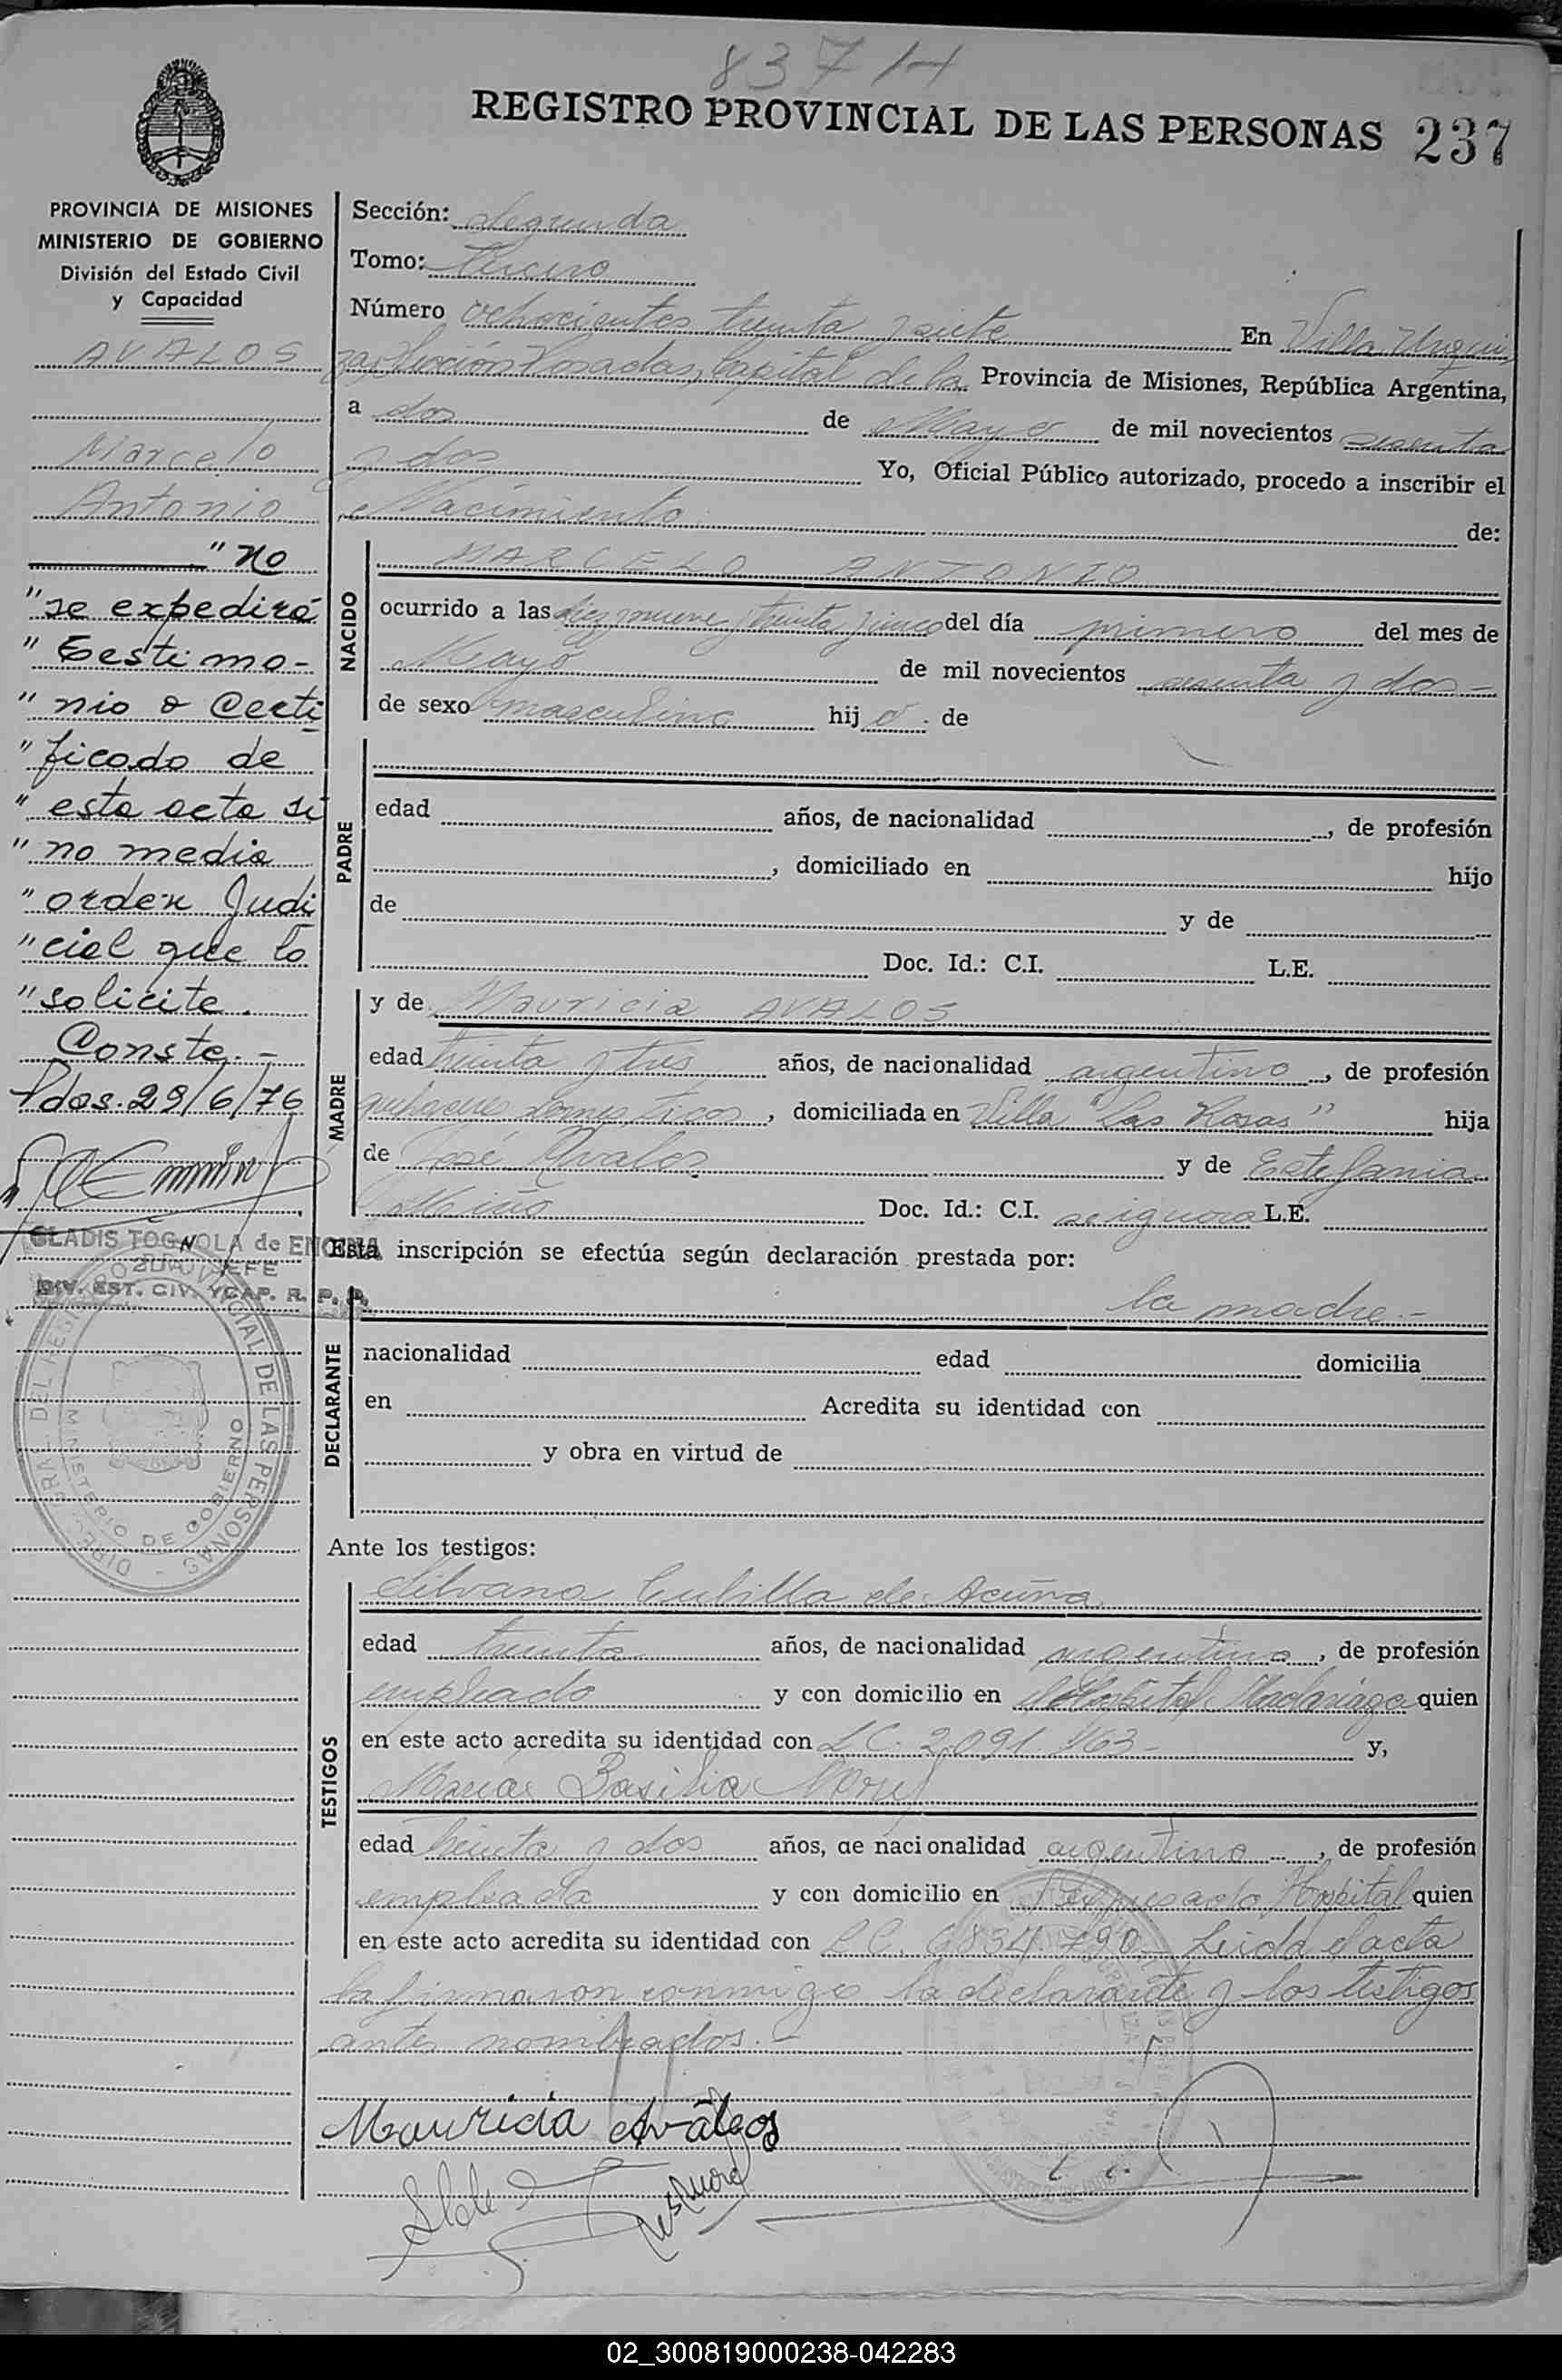 837 H
REGISTRO PROVINCIAL DE LAS PERSONAS 237
PROVINCIA DE MISIONES
MINISTERIO DE GOBIERNO
División del Estado Civil
y Capacidad
AVALOS
Marcelo
Antonio
" No
" se expedirá
" testimo-
" nio o Certi
" ficado de
" esta acta si
" no media
" orden Judi
" cial que lo
" solicite.
Conste.-
Pdas. 29/6/76
GLADIS TOGNOLA de ENCINA
2DA. JEFE
DIV. EST. CIV. Y CAP. R. P. P.
DIREC. GRAL. DEL REGISTRO PROVINCIAL DE LAS PERSONAS
MINISTERIO DE GOBIERNO
Sección: Segunda
Tomo: Tercero
Número ochocientos treinta y siete En Villa Urqui
za, Sección Posadas, Capital de la Provincia de Misiones, República Argentina,
a dos de Mayo de mil novecientos sesenta
y dos Yo, Oficial Público autorizado, procedo a inscribir el
Nacimiento de:
NACIDO
MARCELO ANTONIO
ocurrido a las diez y nueve y treinta y cinco del día primero del mes de
Mayo de mil novecientos sesenta y dos -
de sexo masculino hijo de
PADRE
edad años, de nacionalidad , de profesión
, domiciliado en hijo
de y de
Doc. Id.: C.I. L.E.
MADRE
y de Mauricia AVALOS
edad treinta y tres años, de nacionalidad argentino, de profesión
quehaceres domesticos, domiciliada en Villa "Las Rosas" hija
de José Avalos y de Estefania
Miño Doc. Id.: C.I. se ignora L.E.
Esta inscripción se efectúa según declaración prestada por:
DECLARANTE
la madre.-
nacionalidad edad domicilia
en Acredita su identidad con
y obra en virtud de
Ante los testigos:
TESTIGOS
Silvana Cubilla de Acuña
edad treinta años, de nacionalidad argentina, de profesión
empleado y con domicilio en Hospital Madariaga quien
en este acto acredita su identidad con L.C. 2.091.463- y,
Maria Basilia Morel
edad treinta y dos años, de nacionalidad argentino, de profesión
empleada y con domicilio en expresado Hospital quien
en este acto acredita su identidad con L.C. 6834.790- Leida el acta
la firmaron conmigo la declarante y los testigos
antes nombrados.-
Mauricia Avalos
02_300819000238-042283